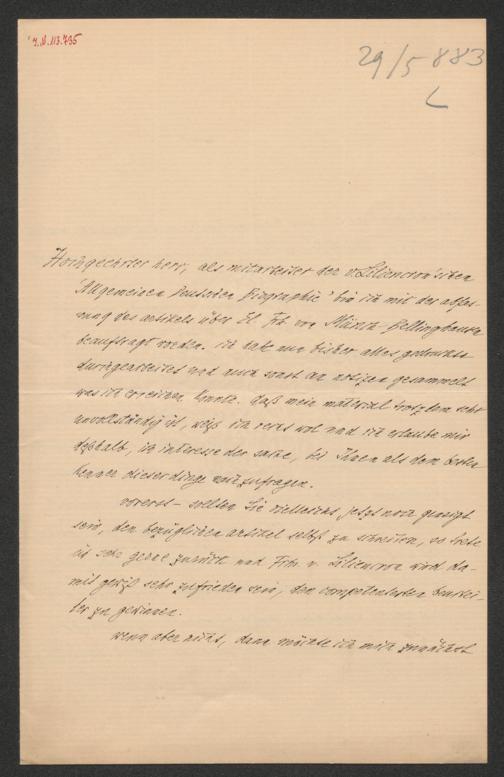 I.N. 113.735
29/5 883
L
Hochgeehrter herr, als mitarbeiter der v. Liliencron'schen
"Allgemeinen Deutschen Biographie" bin ich mit der abfas-
sung des artikels über El. Frh. von Münch-Bellinghausen
beauftragt worden. ich habe nun bisher alles gedruckte
durchgearbeitet und auch sonst an notizen gesammelt
was ich erreichen konnte. daß mein material trotzdem sehr
unvollständig ist, weiß ich recht wol und ich erlaube mir
deshalb, im interesse der sache, bei Ihnen als dem besten
kenner dieser dinge anzufragen.
vorerst – sollten Sie vielleicht jetzt noch geneigt
sein, den bezüglichen artikel selbst zu schreiben, so trete
ich sehr gerne zurück und Frh. v. Liliencron wird da-
mit gewiß sehr zufrieden sein, den competentesten beurtei-
ler zu gewinnen.
wenn aber nicht, dann möchte ich mich zunächst